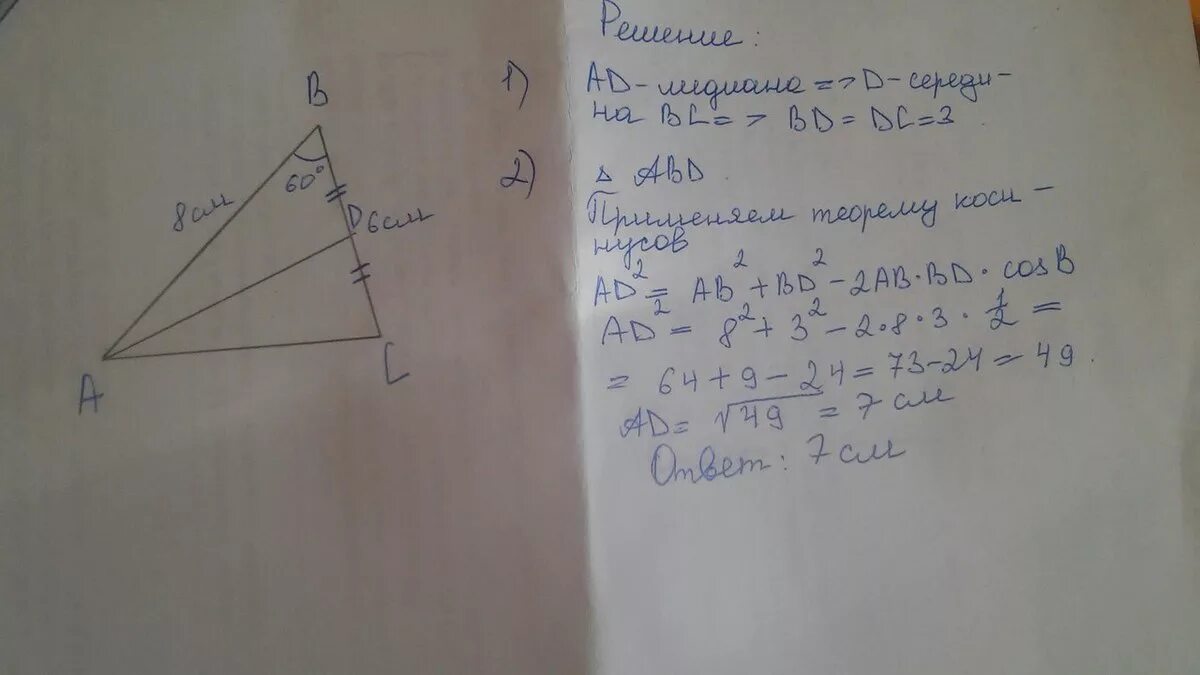 B
60°
8 см
D 6 см
A
C
Решение:
1) AD - медиана => D - середи-
на BC => BD = DC = 3
2) Δ ABD.
Применяем теорему коси-
нусов
AD² = AB² + BD² - 2AB·BD·cosB
AD² = 8² + 3² - 2·8·3·1/2 =
= 64 + 9 - 24 = 73 - 24 = 49.
AD = √49 = 7 см
Ответ: 7 см